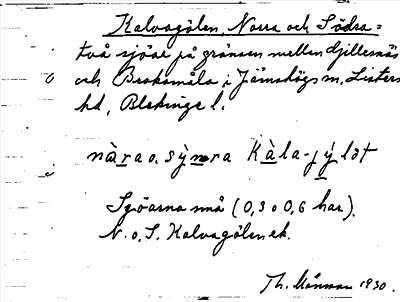 Kalvagölen, Norra och Södra =
två sjöar på gränsen mellan Gillesnäs
och Broksmåla i Jämshögs sn, Listers
hd, Blekinge l.
nàra o. sỳnra Kàla-jýlət
Sjöarna små (0,3 o 0,6 har).
N. o. S. Kalvagölen ek.
Th. 1930.